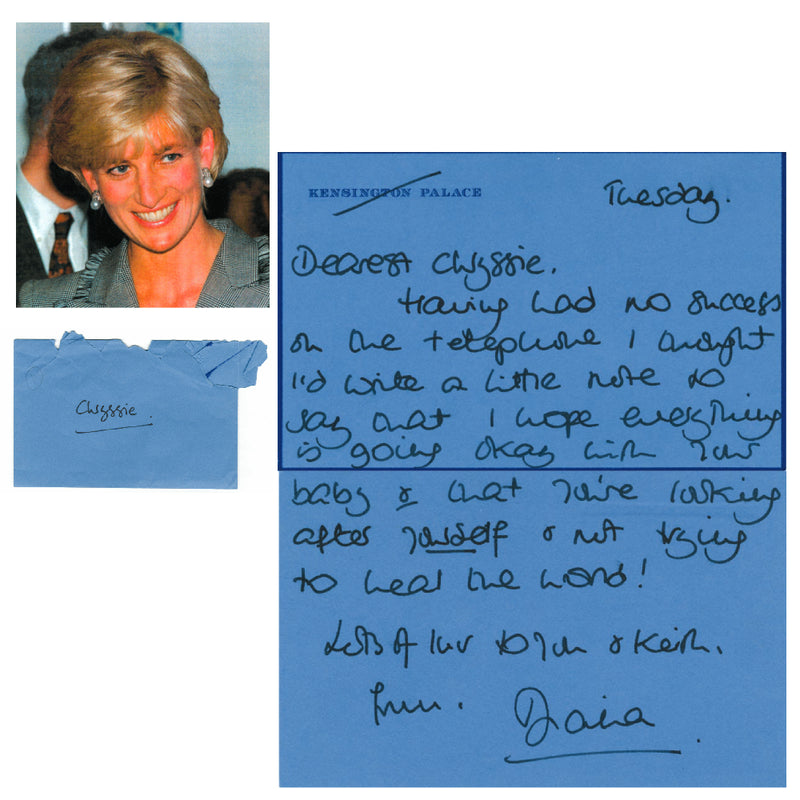 Chryssie
KENSINGTON PALACE
Tuesday.
Dearest Chryssie,
Having had no success
on the telephone I thought
I'd write a little note to
say that I hope everything
is going okay with your
baby & that you're looking
after yourself & not trying
to heal the world!
Lots of luv to you & Keith,
from.
Diana